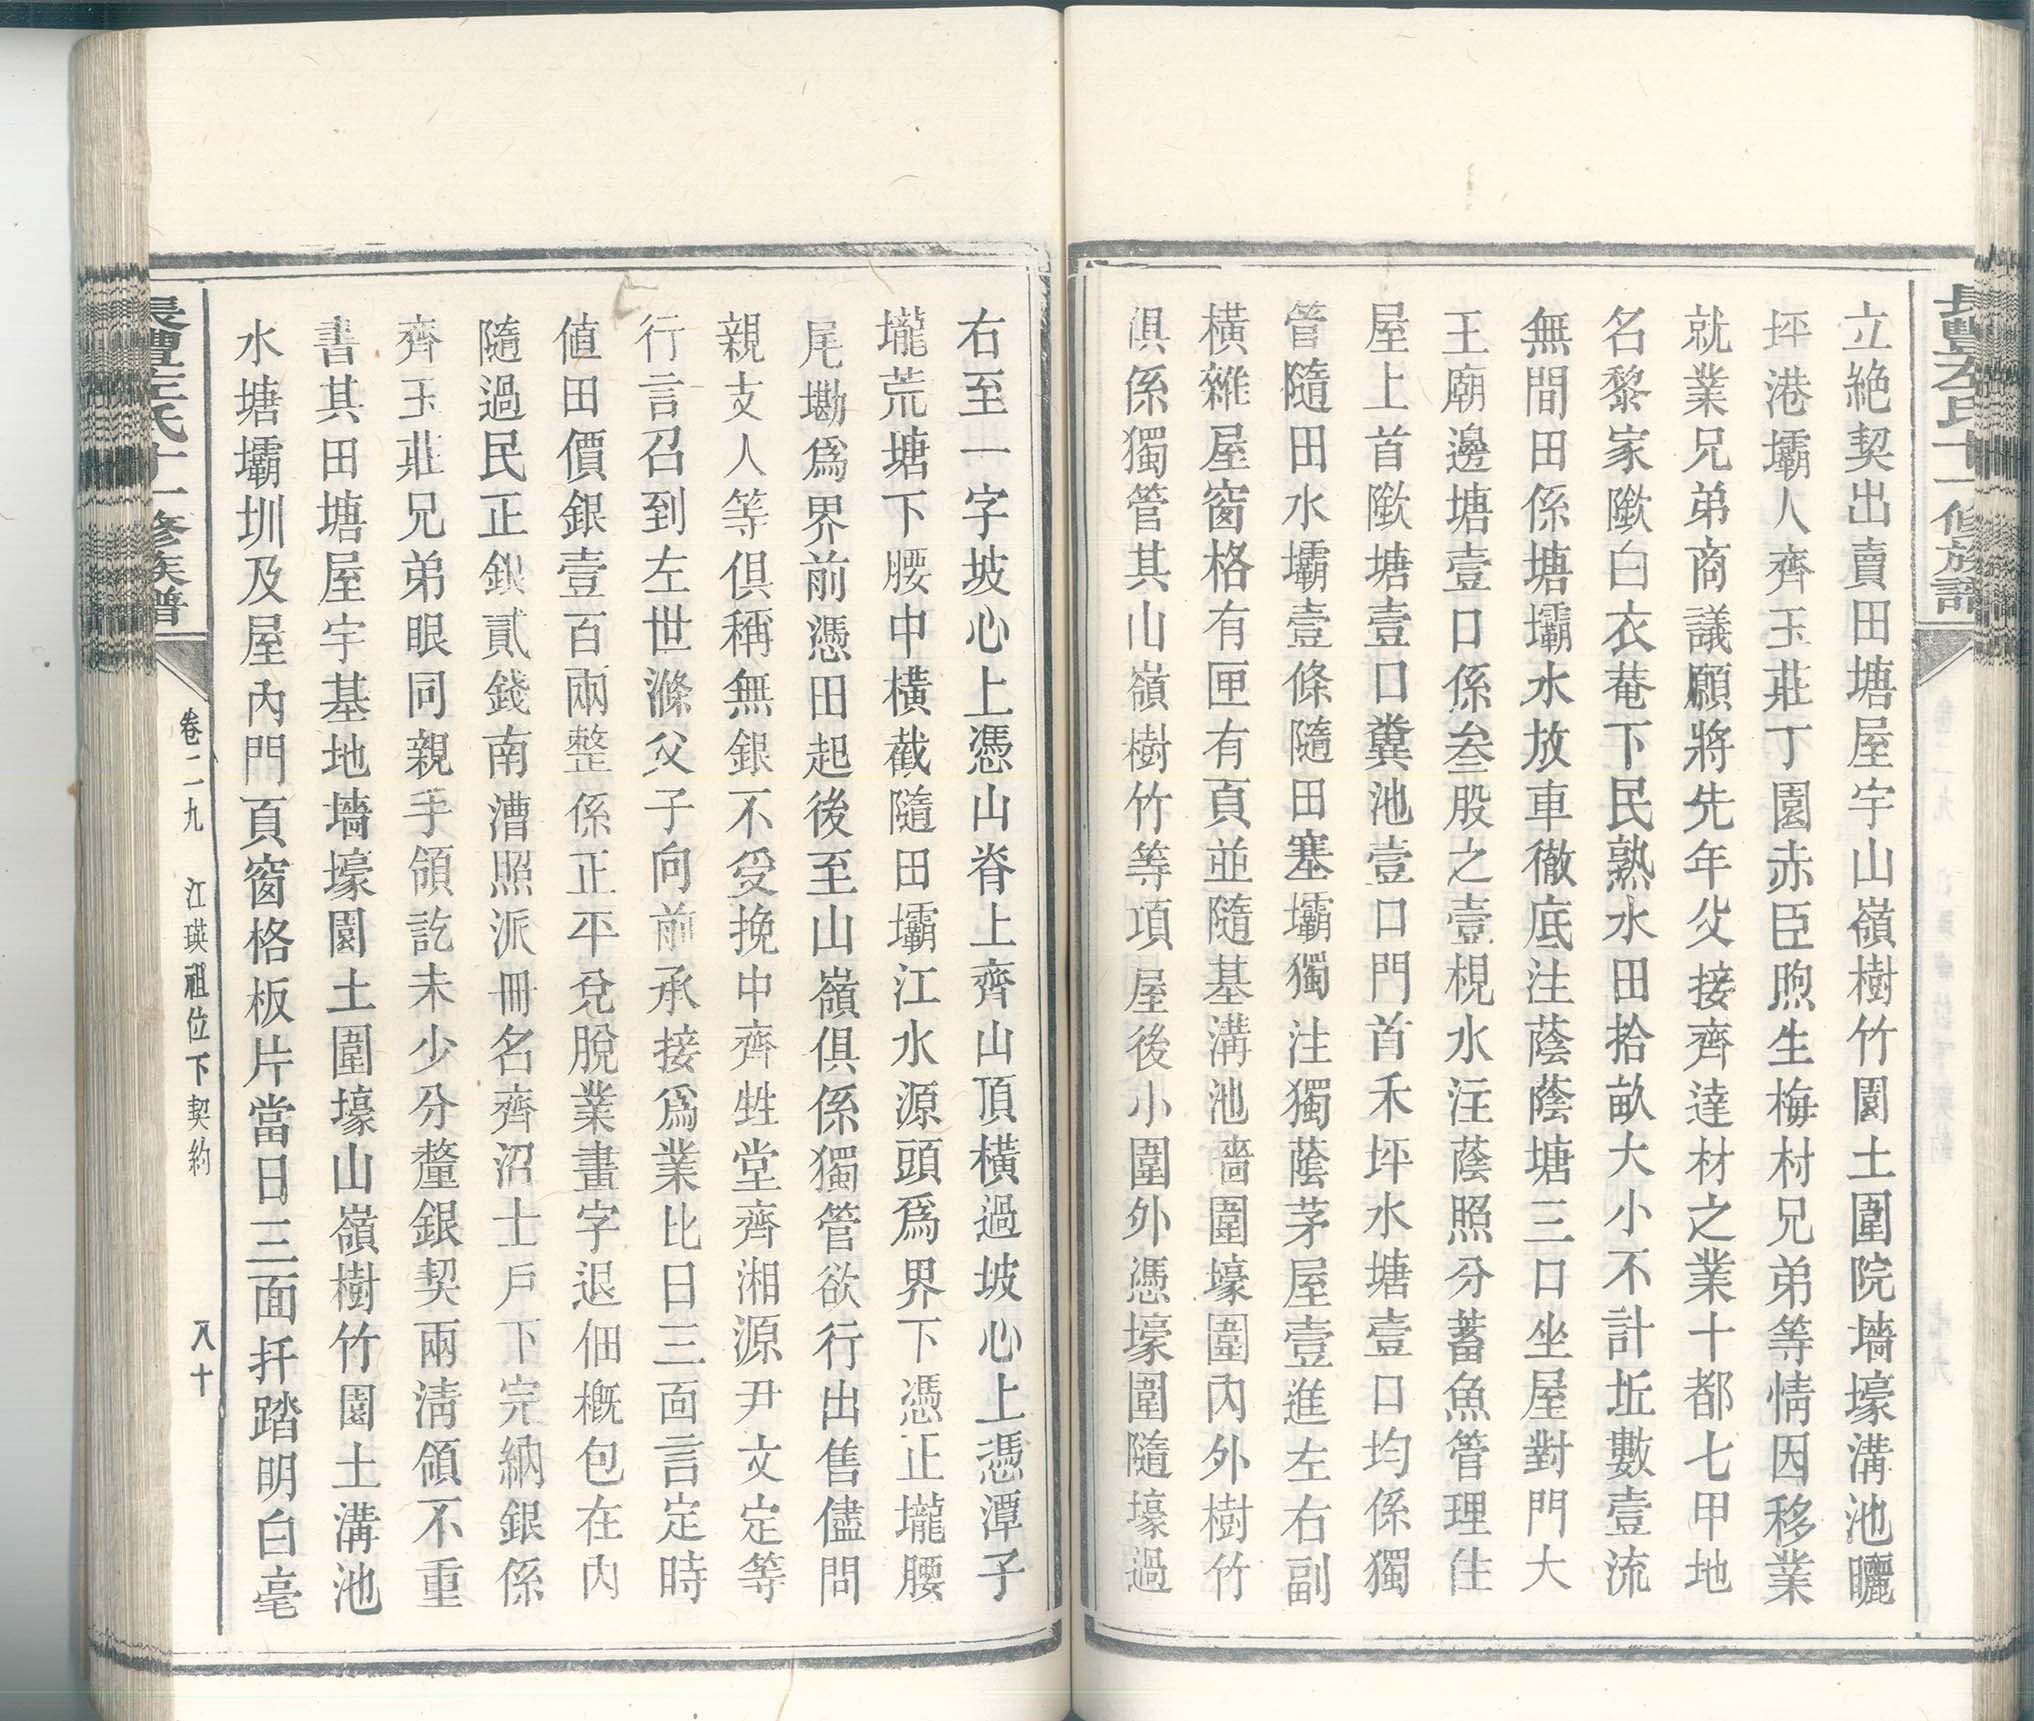 立絕契出賣田塘屋宇山嶺樹竹園土圍院墻壕溝池曬
坪港壩人齊玉莊丁園赤臣煦生梅村兄弟等情因移業
就業兄弟商議願將先年父接齊達材之業十都七甲地
名黎家隞白衣菴下民熟水田拾畝大小不計坵數壹流
無間田係塘壩水放車徹底注蔭蔭塘三口坐屋對門大
王廟邊塘壹口係叁股之壹梘水注蔭照分蓄魚管理住
屋上首隞塘壹口糞池壹口門首禾坪水塘壹口均係獨
管隨田水壩壹條隨田塞壩獨注獨蔭茅屋壹進左右副
橫雜屋窗格有匣有頁並隨基溝池嗇圍壕圍內外樹竹
俱係獨管其山嶺樹竹等項屋後小圍外憑壕圍隨壕過
右至一字坡心上憑山脊上齊山頂橫過坡心上憑潭子
壠荒塘下腰中橫截隨田壩江水源頭為界下憑正壠腰
尾墈為界前憑田起後至山嶺俱係獨管欲行出售儘問
親支人等俱稱無銀不受挽中齊甡堂齊湘源尹文定等
行言召到左世滌父子向前承接為業比日三面言定時
值田價銀壹百兩整係正平兌脫業畫字退佃概包在內
隨過民正銀貳錢南漕照派冊名齊沼士戶下完納銀係
齊玉莊兄弟眼同親手領訖未少分釐銀契兩淸領不重
書其田塘屋宇基地墻壕園土圍壕山嶺樹竹園土溝池
水塘壩圳及屋內門頁窗格板片當日三面扦踏明白毫
卷二九 江瑛祖位下契約 八十